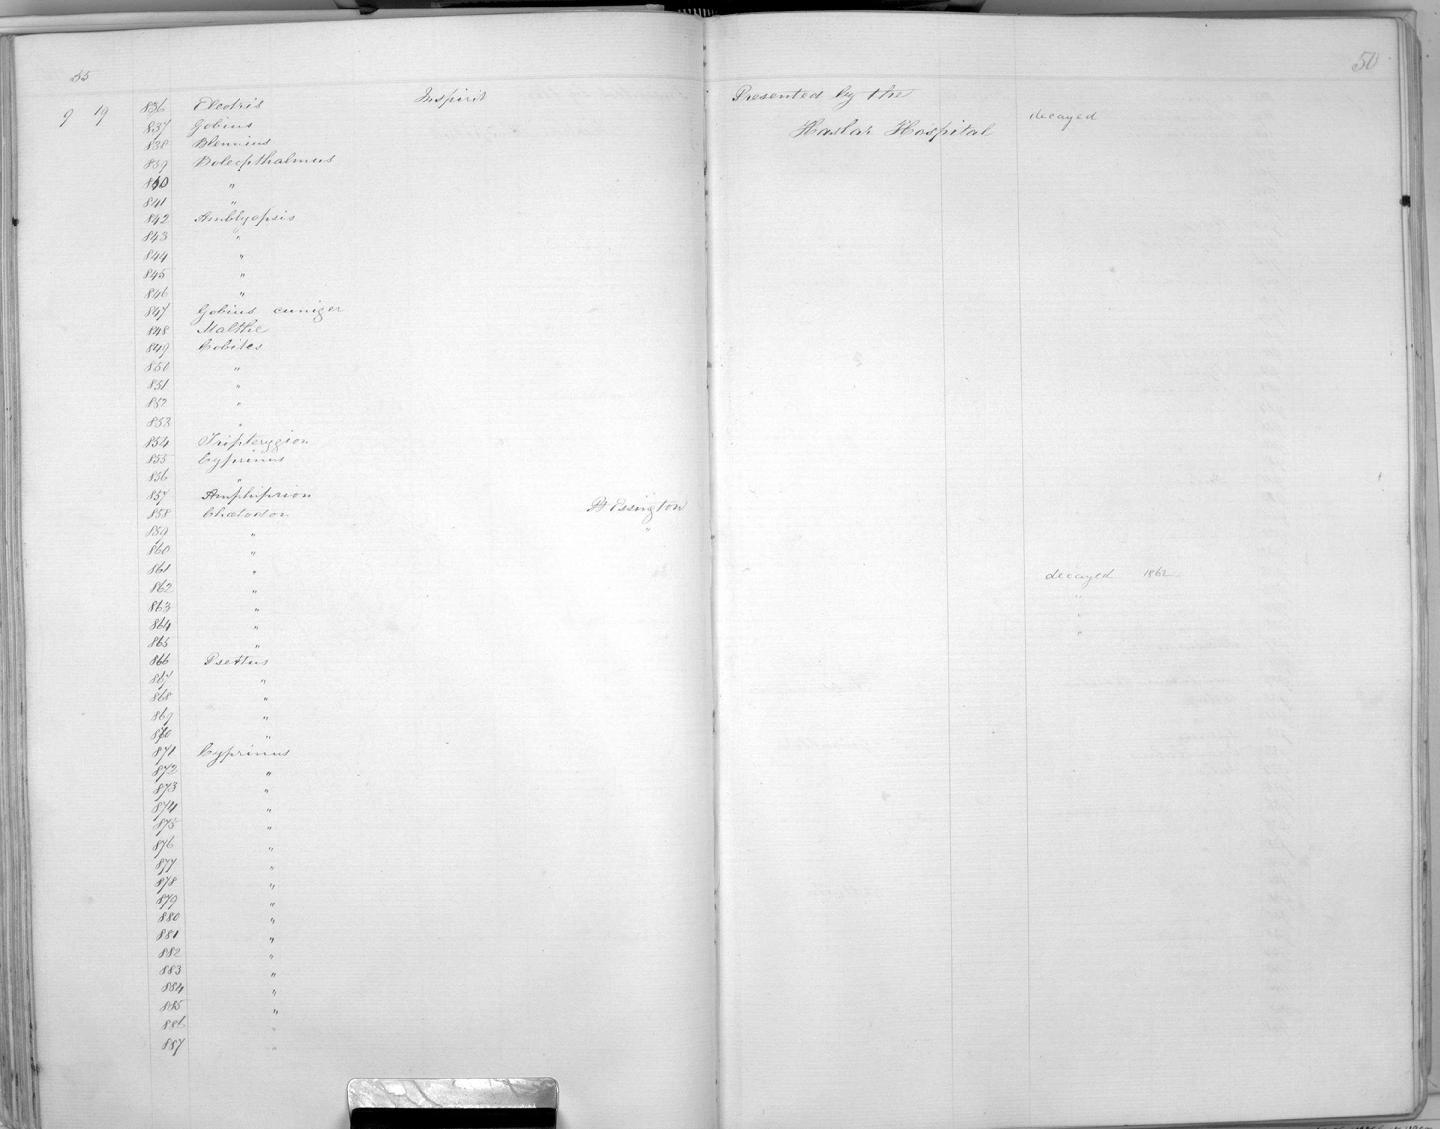 50
55
9 19 836 Eleotris In spirit Presented by the
837 Gobius Haslar Hospital decayed
838 Blennius
839 Boleopthalmus
840 "
841 "
842 Amblyopsis
843 "
844 "
845 "
846 "
847 Gobius cuniger
848 Malthe
849 Cobites
850 "
851 "
852 "
853 "
854 Tripterygion
855 Cyprinus
856 "
857 Amphiprion
858 Chætodon Pt Essington
859 " "
860 "
861 " decayed 1862
862 " "
863 " "
864 " "
865 "
866 Psettus
867 "
868 "
869 "
870 "
871 Cyprinus
872 "
873 "
874 "
875 "
876 "
877 "
878 "
879 "
880 "
881 "
882 "
883 "
884 "
885 "
886 "
887 "